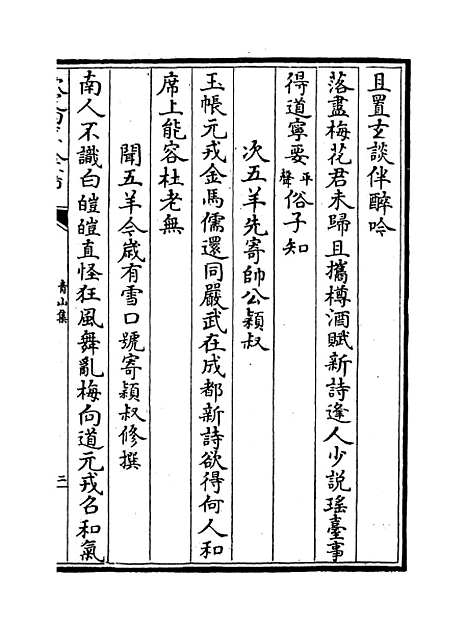 且置玄談伴醉吟
落盡梅花君未歸且攜樽酒賦新詩逢人少說瑤臺事
得道寧要平聲俗子知
次五羊先寄帥公穎叔
玉帳元戎金馬儒還同嚴武在成都新詩欲得何人和
席上能容杜老無
聞五羊今歲有雪口號寄穎叔修撰
南人不識白皚皚直怪狂風舞亂梅向道元戎召和氣
青山集
三